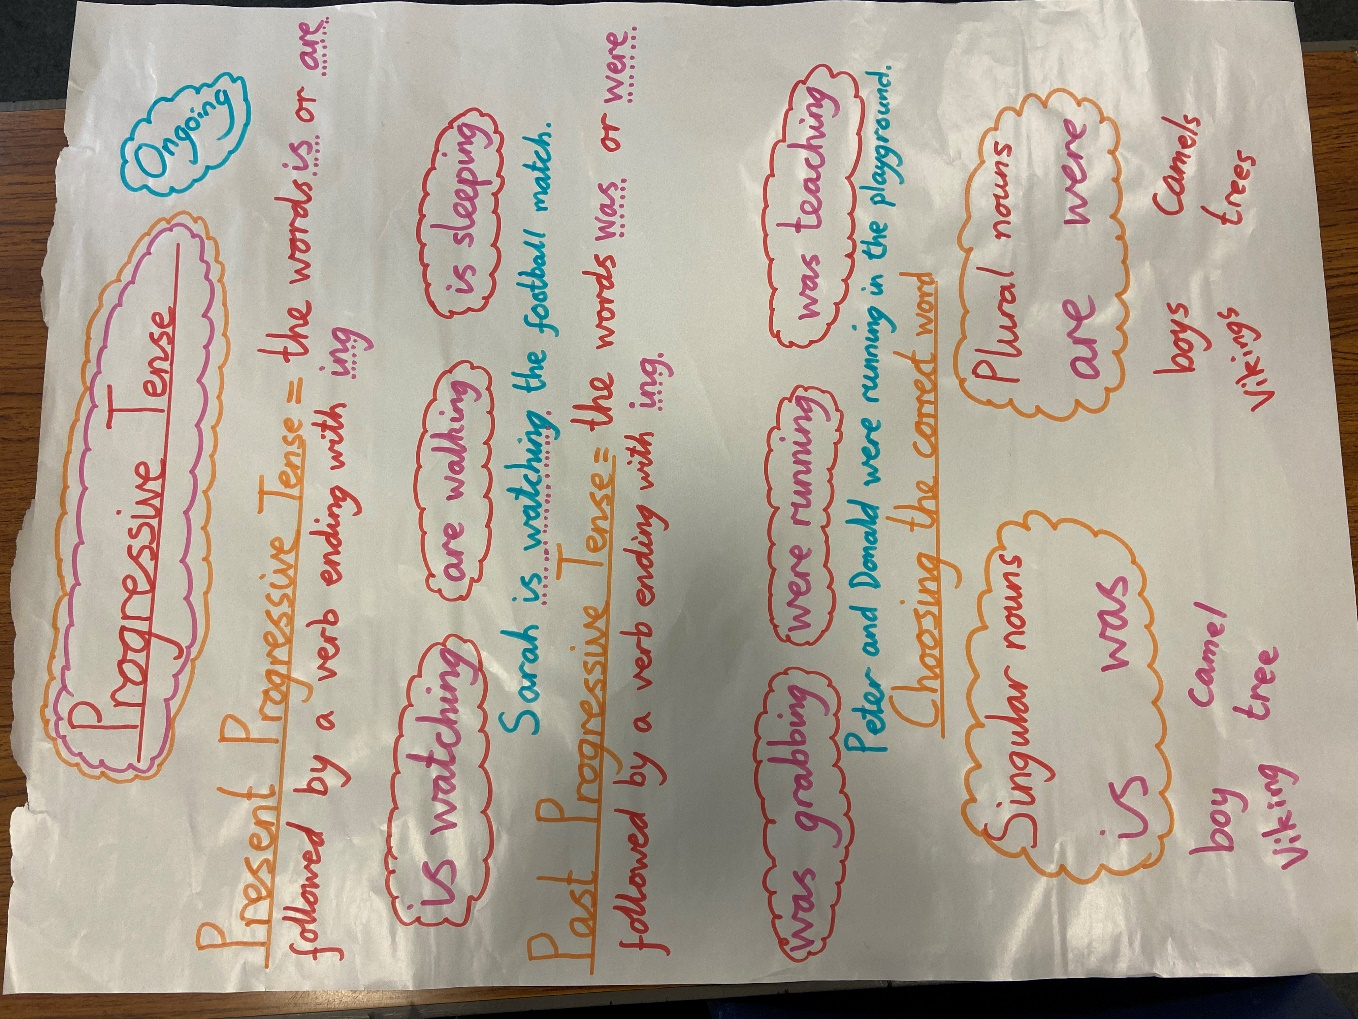 Progressive Tense
Ongoing
Present Progressive Tense = the words is or are
followed by a verb ending with ing
is watching are walking is sleeping
Sarah is watching the football match.
Past Progressive Tense = the words was or were
followed by a verb ending with ing.
was grabbing were running was teaching
Peter and Donald were running in the playground.
Choosing the correct word
Singular nouns
is was
boy camel
Viking tree
Plural nouns
are were
boys camels
Vikings trees